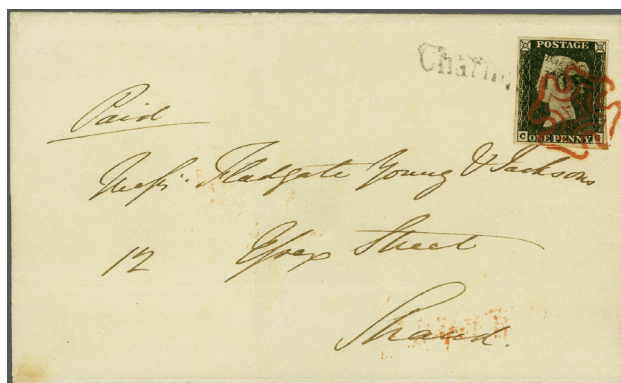 Charing
POSTAGE
C
ONE PENNY
Paid
Messrs. Fladgate Young & Jacksons
12 Essex Street
Strand.